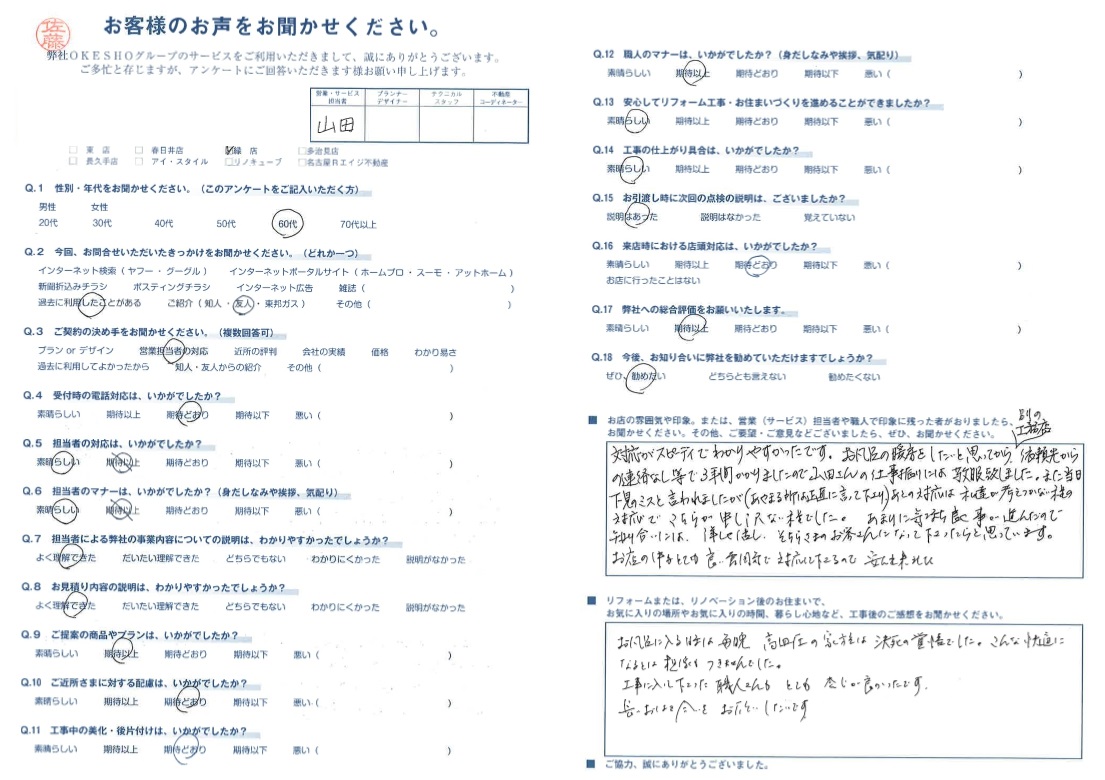 佐藤
お客様のお声をお聞かせください。
弊社OKESHOグループのサービスをご利用いただきまして、誠にありがとうございます。
ご多忙と存じますが、アンケートにご回答いただきます様お願い申し上げます。
営業・サービス担当者 プランナーデザイナー テクニカルスタッフ 不動産コーディネーター
山田
東 店 春日井店 緑 店 多治見店
長久手店 アイ・スタイル リノキューブ 名古屋Rエイジ不動産
Q.1 性別・年代をお聞かせください。（このアンケートをご記入いただく方）
男性 女性
20代 30代 40代 50代 60代 70代以上
Q.2 今回、お問合せいただいたきっかけをお聞かせください。（どれか一つ）
インターネット検索（ヤフー・グーグル） インターネットポータルサイト（ホームプロ・スーモ・アットホーム）
新聞折込みチラシ ポスティングチラシ インターネット広告 雑誌（ ）
過去に利用したことがある ご紹介（知人・友人・東邦ガス） その他（ ）
Q.3 ご契約の決め手をお聞かせください。（複数回答可）
プラン or デザイン 営業担当者の対応 近所の評判 会社の実績 価格 わかり易さ
過去に利用してよかったから 知人・友人からの紹介 その他（ ）
Q.4 受付時の電話対応は、いかがでしたか？
素晴らしい 期待以上 期待どおり 期待以下 悪い（ ）
Q.5 担当者の対応は、いかがでしたか？
素晴らしい 期待以上 期待どおり 期待以下 悪い（ ）
Q.6 担当者のマナーは、いかがでしたか？（身だしなみや挨拶、気配り）
素晴らしい 期待以上 期待どおり 期待以下 悪い（ ）
Q.7 担当者による弊社の事業内容についての説明は、わかりやすかったでしょうか？
よく理解できた だいたい理解できた どちらでもない わかりにくかった 説明がなかった
Q.8 お見積り内容の説明は、わかりやすかったでしょうか？
よく理解できた だいたい理解できた どちらでもない わかりにくかった 説明がなかった
Q.9 ご提案の商品やプランは、いかがでしたか？
素晴らしい 期待以上 期待どおり 期待以下 悪い（ ）
Q.10 ご近所さまに対する配慮は、いかがでしたか？
素晴らしい 期待以上 期待どおり 期待以下 悪い（ ）
Q.11 工事中の美化・後片付けは、いかがでしたか？
素晴らしい 期待以上 期待どおり 期待以下 悪い（ ）
Q.12 職人のマナーは、いかがでしたか？（身だしなみや挨拶、気配り）
素晴らしい 期待以上 期待どおり 期待以下 悪い（ ）
Q.13 安心してリフォーム工事・お住まいづくりを進めることができましたか？
素晴らしい 期待以上 期待どおり 期待以下 悪い（ ）
Q.14 工事の仕上がり具合は、いかがでしたか？
素晴らしい 期待以上 期待どおり 期待以下 悪い（ ）
Q.15 お引渡し時に次回の点検の説明は、ございましたか？
説明はあった 説明はなかった 覚えていない
Q.16 来店時における店頭対応は、いかがでしたか？
素晴らしい 期待以上 期待どおり 期待以下 悪い（ ）
お店に行ったことはない
Q.17 弊社への総合評価をお願いいたします。
素晴らしい 期待以上 期待どおり 期待以下 悪い（ ）
Q.18 今後、お知り合いに弊社を勧めていただけますでしょうか？
ぜひ、勧めたい どちらとも言えない 勧めたくない
お店の雰囲気や印象。または、営業（サービス）担当者や職人で印象に残った者がおりましたら、
お聞かせください。その他、ご要望・ご意見などございましたら、ぜひ、お聞かせください。
別の
工務店
対応がスピーディでわかりやすかったです。お風呂の暖房をしたいと思ってから 依頼先から
の連絡なし等で3年間かかりましたので山田さんの仕事振りには敬服致しました。また当日
下見のミスと言われましたが(あやまる所は正直に言って下さり)あとの対応は 私達が考えつかない様の
対応で こちらが申し訳ない様でした。 あまりに気持ち良く事が進んだので
知り合いには、 そちらさまのお客さんになって下さったらと思っています。
お店の 良い雰囲気で 対応して下さるので
リフォームまたは、リノベーション後のお住まいで、
お気に入りの場所やお気に入りの時間、暮らし心地など、工事後のご感想をお聞かせください。
お風呂に入る時は毎晩 高血圧の 決死の覚悟でした。こんな快適に
なるとは 想像も つきませんでした。
工事に入って下さった 職人さんも とても 感じが良かったです。
ご協力、誠にありがとうございました。